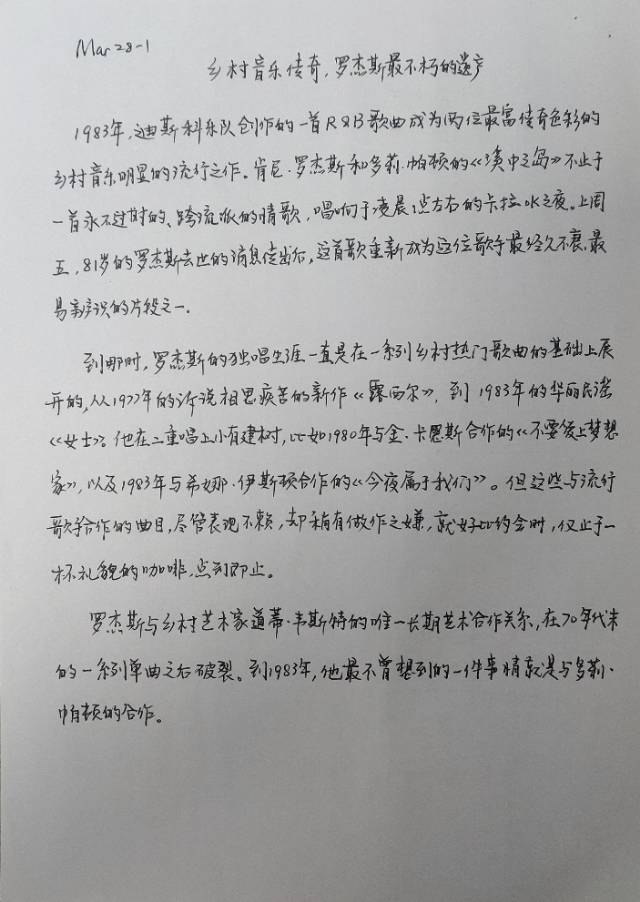 Mar 28-1
乡村音乐传奇，罗杰斯最不朽的遗产
1983年，迪斯科乐队创作的一首R&B歌曲成为两位最富传奇色彩的
乡村音乐明星的流行之作。肯尼·罗杰斯和多莉·帕顿的《溪中之岛》不止于
一首永不过时的、跨流派的情歌，唱响于凌晨1点左右的卡拉OK之夜。上周
五，81岁的罗杰斯去世的消息传出后，这首歌重新成为这位歌手最经久不衰、最
易辨识的片段之一。
到那时，罗杰斯的独唱生涯一直是在一系列乡村热门歌曲的基础上展
开的，从1977年的诉说相思疾苦的新作《露西尔》，到1983年的华丽民谣
《女士》。他在二重唱上小有建树，比如1980年与金·卡恩斯合作的《不要爱上梦想
家》，以及1983年与希娜·伊斯顿合作的《今夜属于我们》。但这些与流行
歌手合作的曲目，尽管表现不赖，却稍有做作之嫌，就好比约会时，仅止于一
杯礼貌的咖啡，点到即止。
罗杰斯与乡村艺术家道蒂·韦斯特的唯一长期艺术合作关系，在70年代末
的一系列单曲之后破裂。到1983年，他最不曾想到的一件事情就是与多莉·
帕顿的合作。